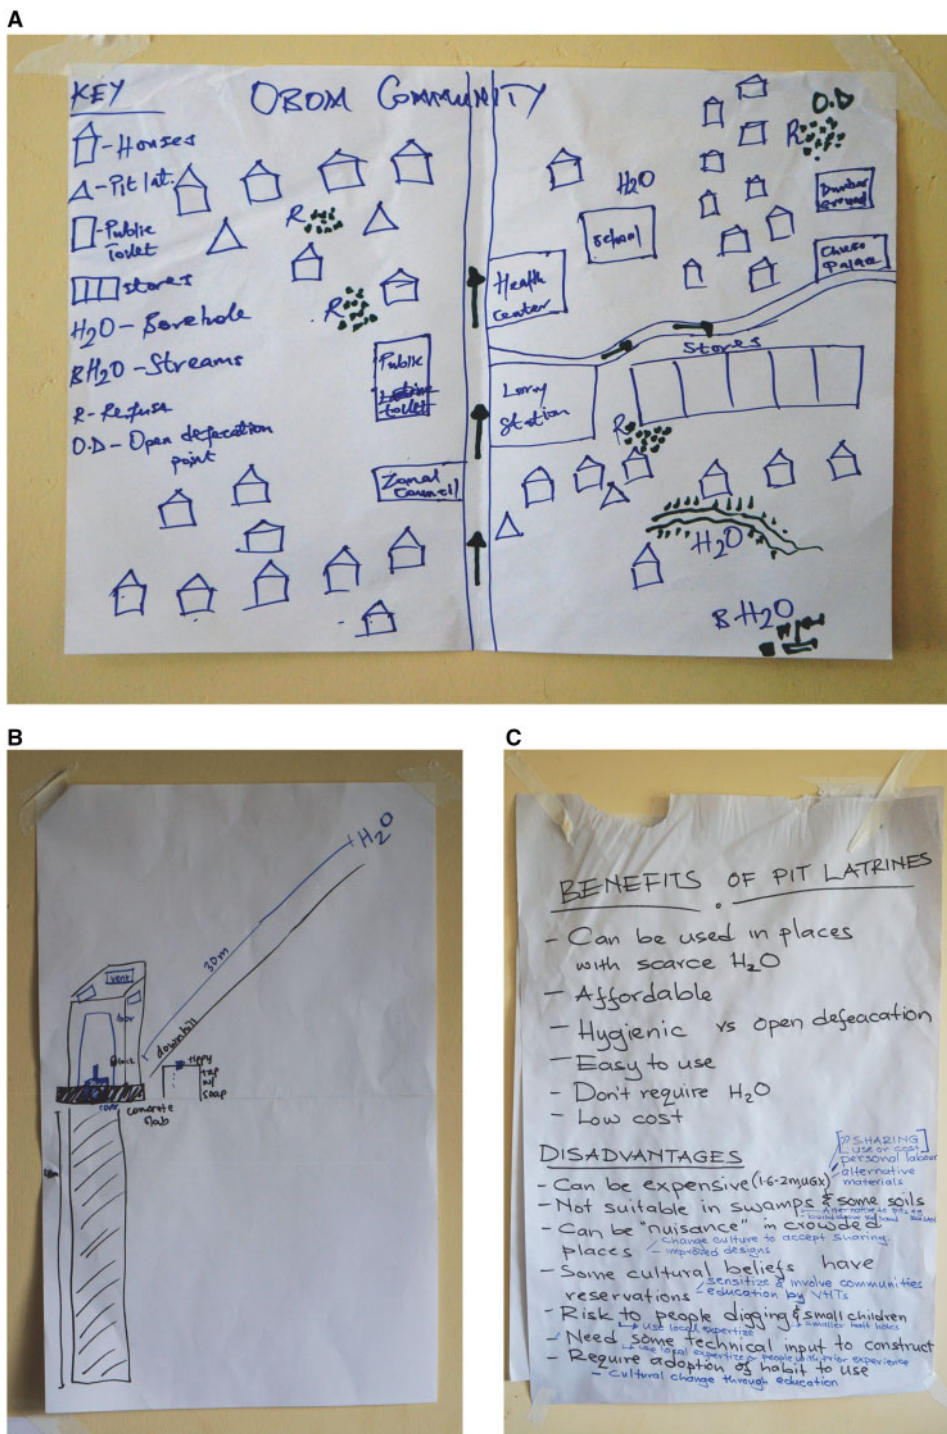 A
KEY
OBOM COMMUNITY
- Houses
- Pit lat.
- Public
Toilet
stores
H2O - Borehole
BH2O - Streams
R - Refuse
O.D - Open defecation
point
R
R
Public
toilet
Zonal
Council
H2O
School
Health
Center
O.D
R
Durbar
ground
Palace
Stores
Lorry
Station
R
H2O
BH2O
B
H2O
30m
downhill
vent
door
tippy
tap
w/
soap
cover
concrete
slab
C
BENEFITS OF PIT LATRINES
- Can be used in places
with scarce H2O
- Affordable
- Hygienic vs open defeacation
- Easy to use
- Don't require H2O
- Low cost
DISADVANTAGES
SHARING
use or cost
personal labour
alternative
materials
- Can be expensive (1.6-2m UGX)
- Not suitable in swamps & some soils
- Can be "nuisance" in crowded
places
change culture to accept sharing.
- improved designs
- Some cultural beliefs have
reservations
sensitize & involve communities
- education by VHTs
- Risk to people digging & small children
use local expertize
smaller
holes
- Need some technical input to construct
use local expertize
people with prior experience
- Require adoption of habit to use
- Cultural change through education